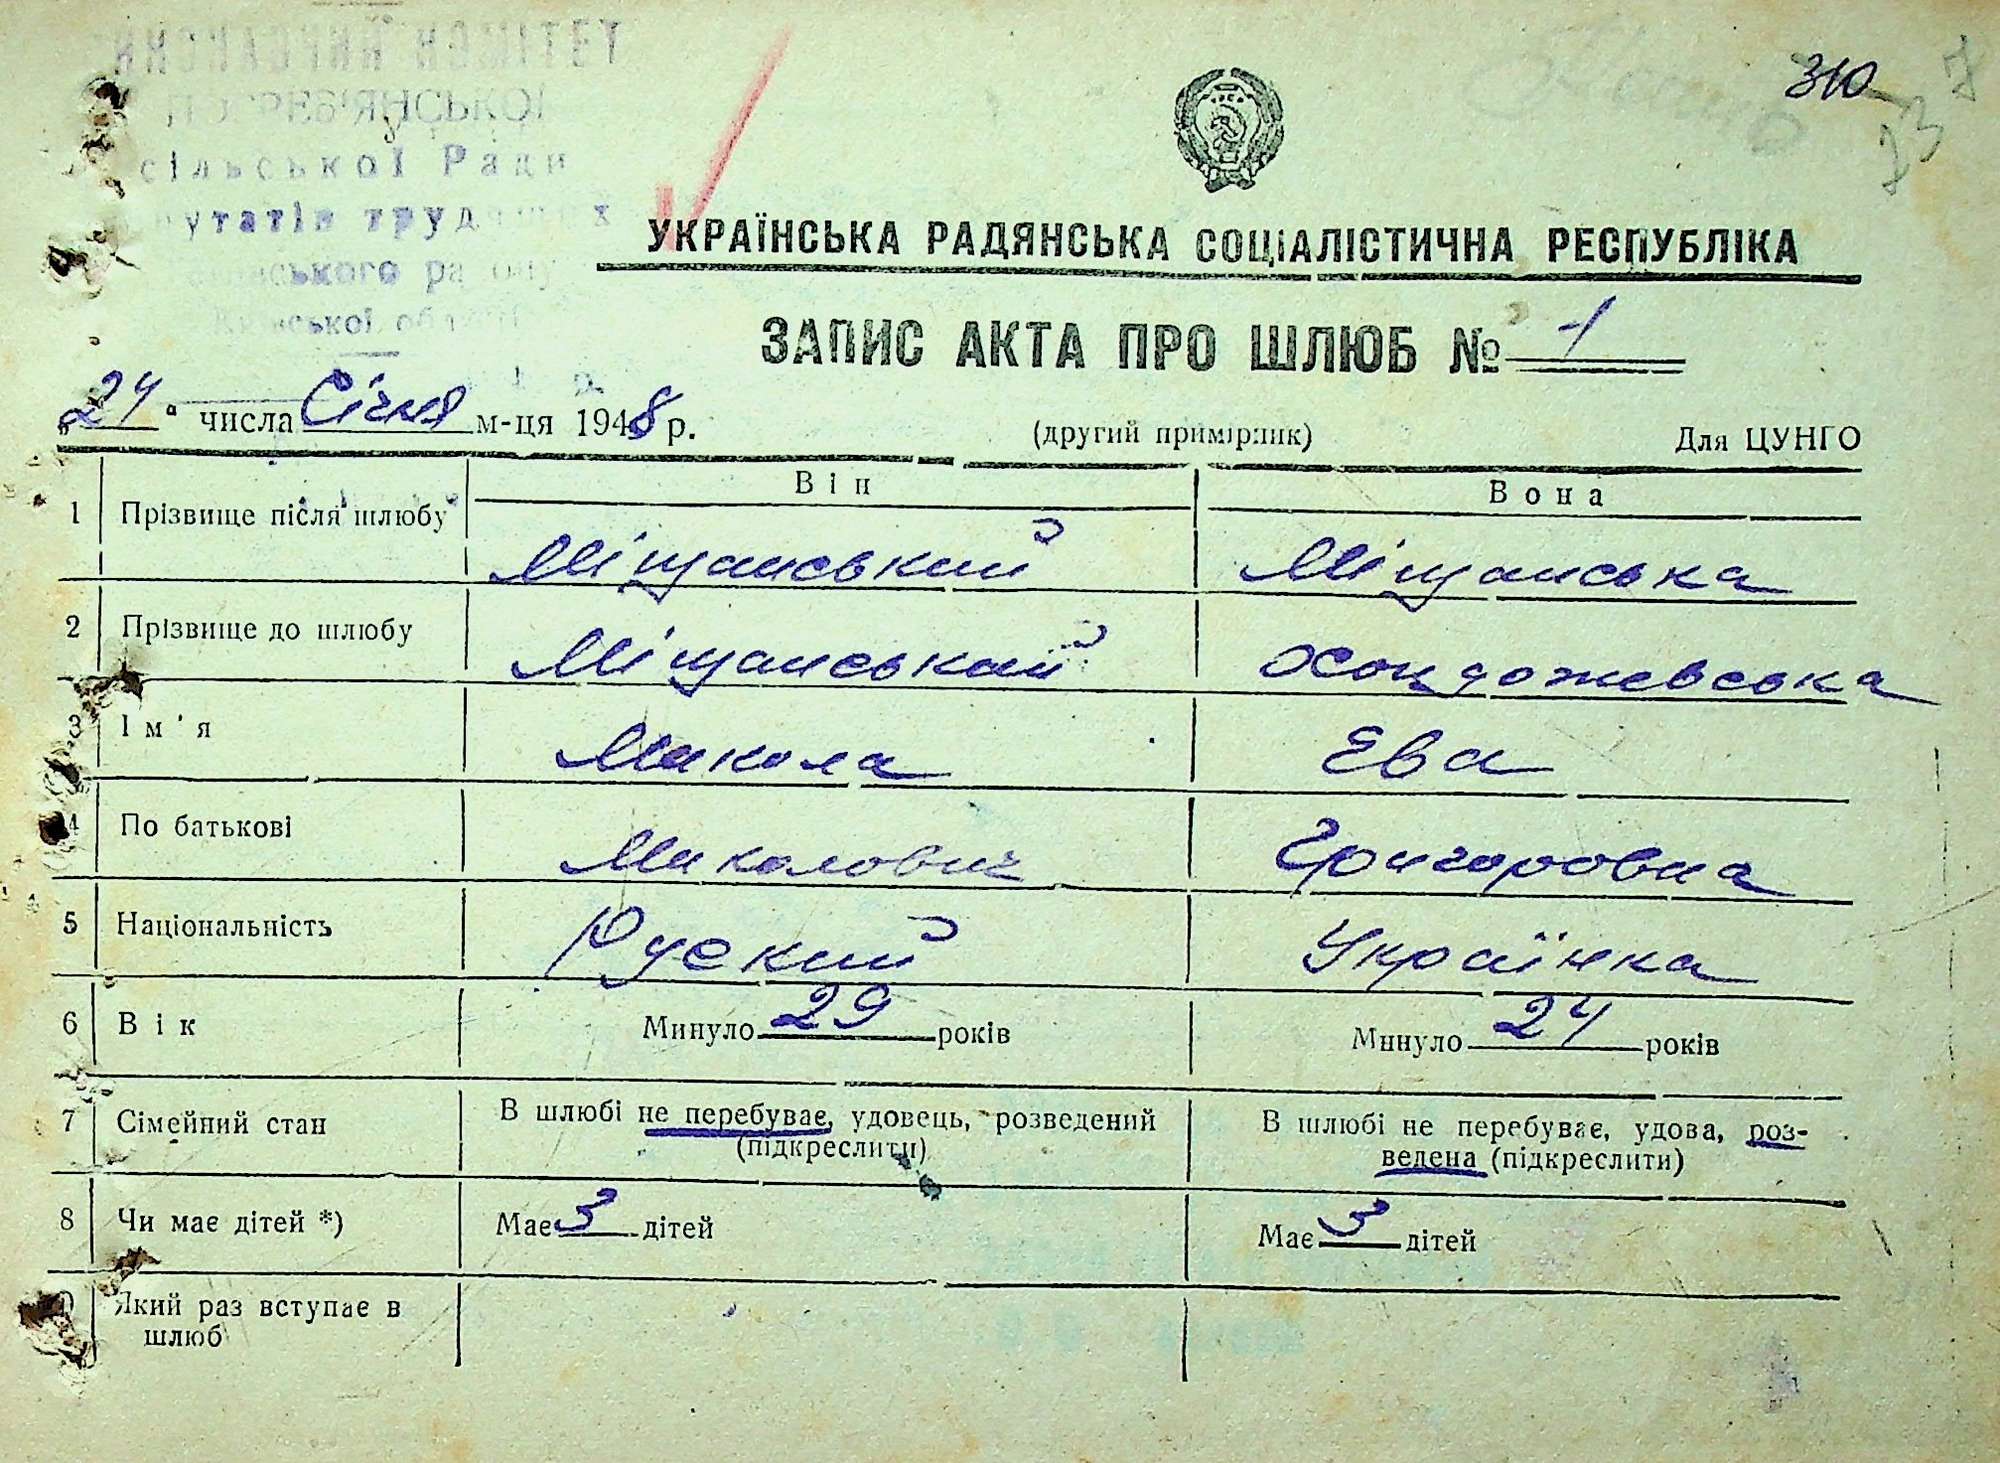 КОМІТЕТ
сільської Ради
310
23
7
УКРАЇНСЬКА РАДЯНСЬКА СОЦІАЛІСТИЧНА РЕСПУБЛІКА
ЗАПИС АКТА ПРО ШЛЮБ № 1
„24“ числа Січня м-ця 1948 р. (другий примірник) Для ЦУНГО
Він Вона
1 Прізвище після шлюбу Міщанський Міщанська
2 Прізвище до шлюбу Міщанський
3 Ім'я Микола Ева
4 По батькові Миколович Григоровна
5 Національність Руский Українка
6 Вік Минуло 29 років Минуло 24 років
7 Сімейний стан В шлюбі не перебуває, удовець, розведений В шлюбі не перебуває, удова, роз-
(підкреслити) ведена (підкреслити)
8 Чи має дітей *) Має 3 дітей Має 3 дітей
9 Який раз вступає в
шлюб